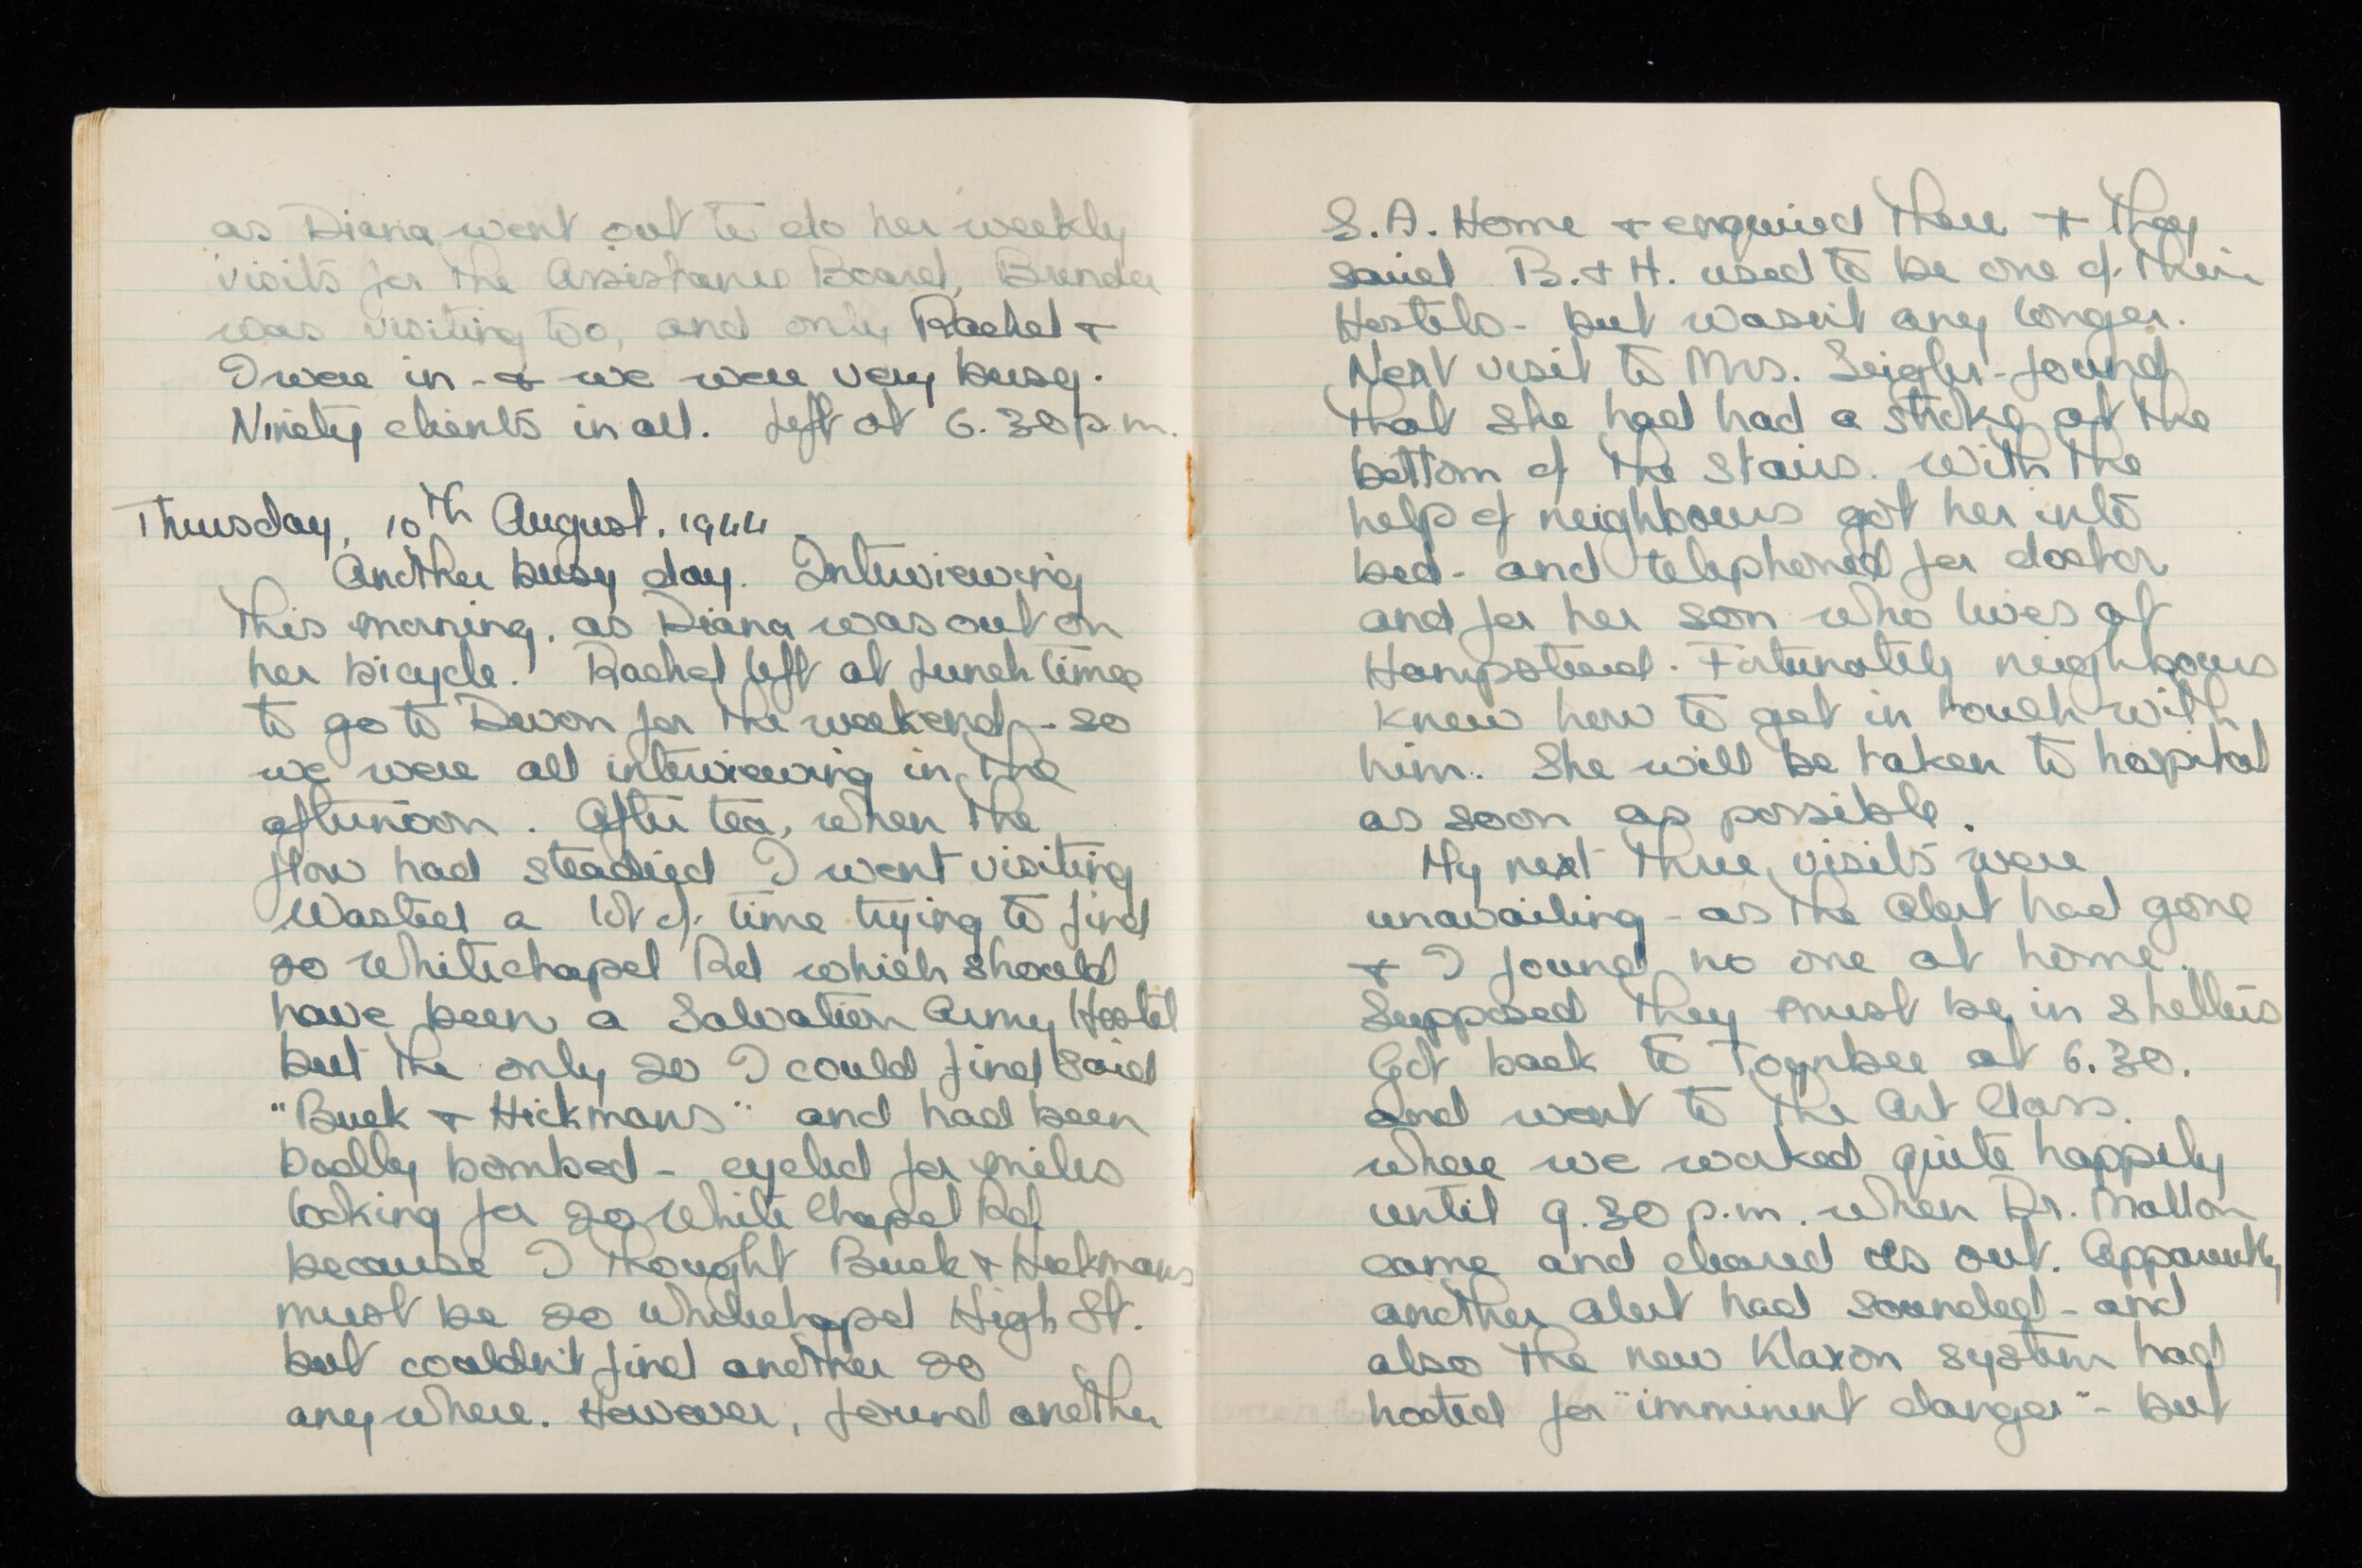 as Diana went out to do her weekly
visits for the Assistance Board, Brenda
was visiting too, and only Rachel +
I were in - & we were very busy.
Ninety clients in all. Left at 6.30 p.m.
Thursday, 10th August, 1944.
Another busy day. Interviewing
this morning, as Diana was out on
her bicycle. Rachel left at lunch time
to go to Devon for the weekend - so
we were all interviewing in the
afternoon. After tea, when the
flow had steadied I went visiting
Wasted a lot of time trying to find
20 Whitechapel Rd which should
have been a Salvation Army Hostel
but the only 20 I could find said
"Buck + Hickmans" and had been
badly bombed - cycled for miles
looking for 20 White Chapel Rd
because I thought Buck + Hickmans
must be 20 Whitechapel High St.
but couldn't find another 20
any where. However, found another
S.A. Home + enquired there + they
said B. + H. used to be one of their
Hostels - but wasn't any longer.
Next visit to Mrs. Seigler - found
that she had had a stroke at the
bottom of the stairs. With the
help of neighbours got her into
bed - and telephoned for doctor
and for her son who lives at
Hampstead. Fortunately neighbours
knew how to get in touch with
him. She will be taken to hospital
as soon as possible.
My next three visits were
unavailing - as the Alert had gone
+ I found no one at home.
Supposed they must be in shelters
Got back to Toynbee at 6.30.
and went to the Art Class.
where we worked quite happily
until 9.30 p.m. when Dr. Mallon
came and cleared us out. Apparently
another alert had sounded - and
also the new Klaxon system had
hooted for "imminent danger" - but